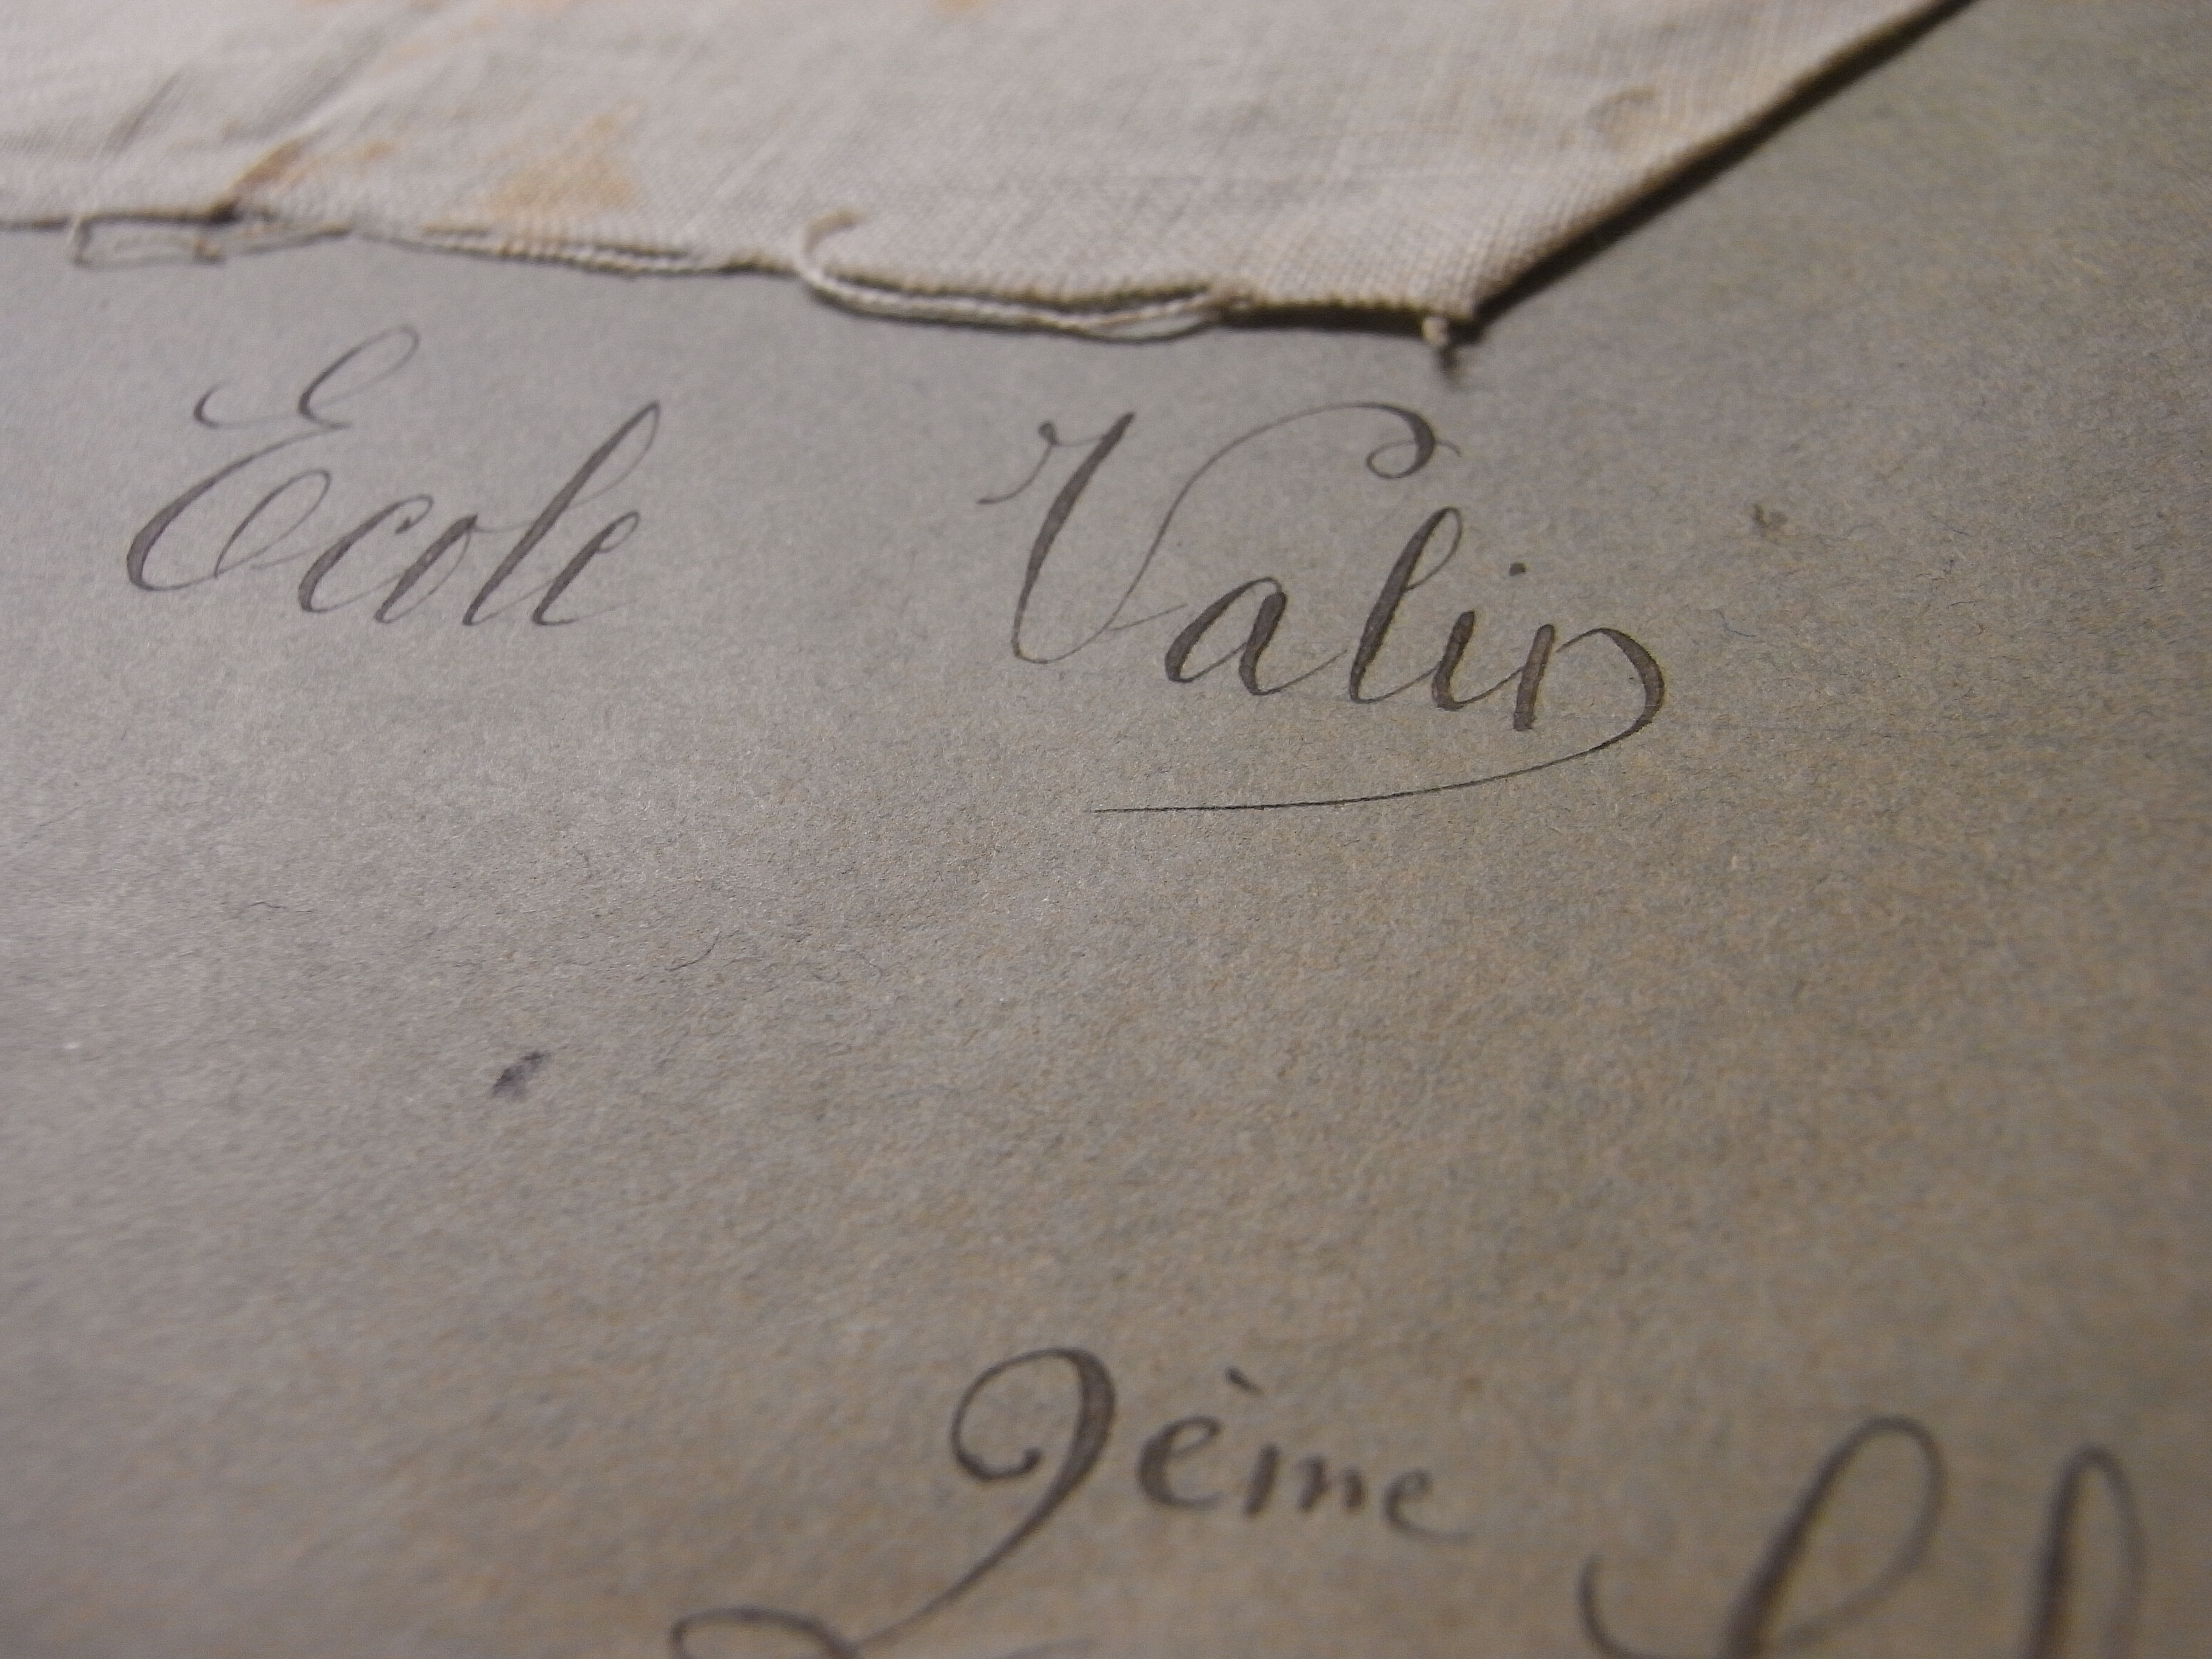 Ecole Valin
2ème